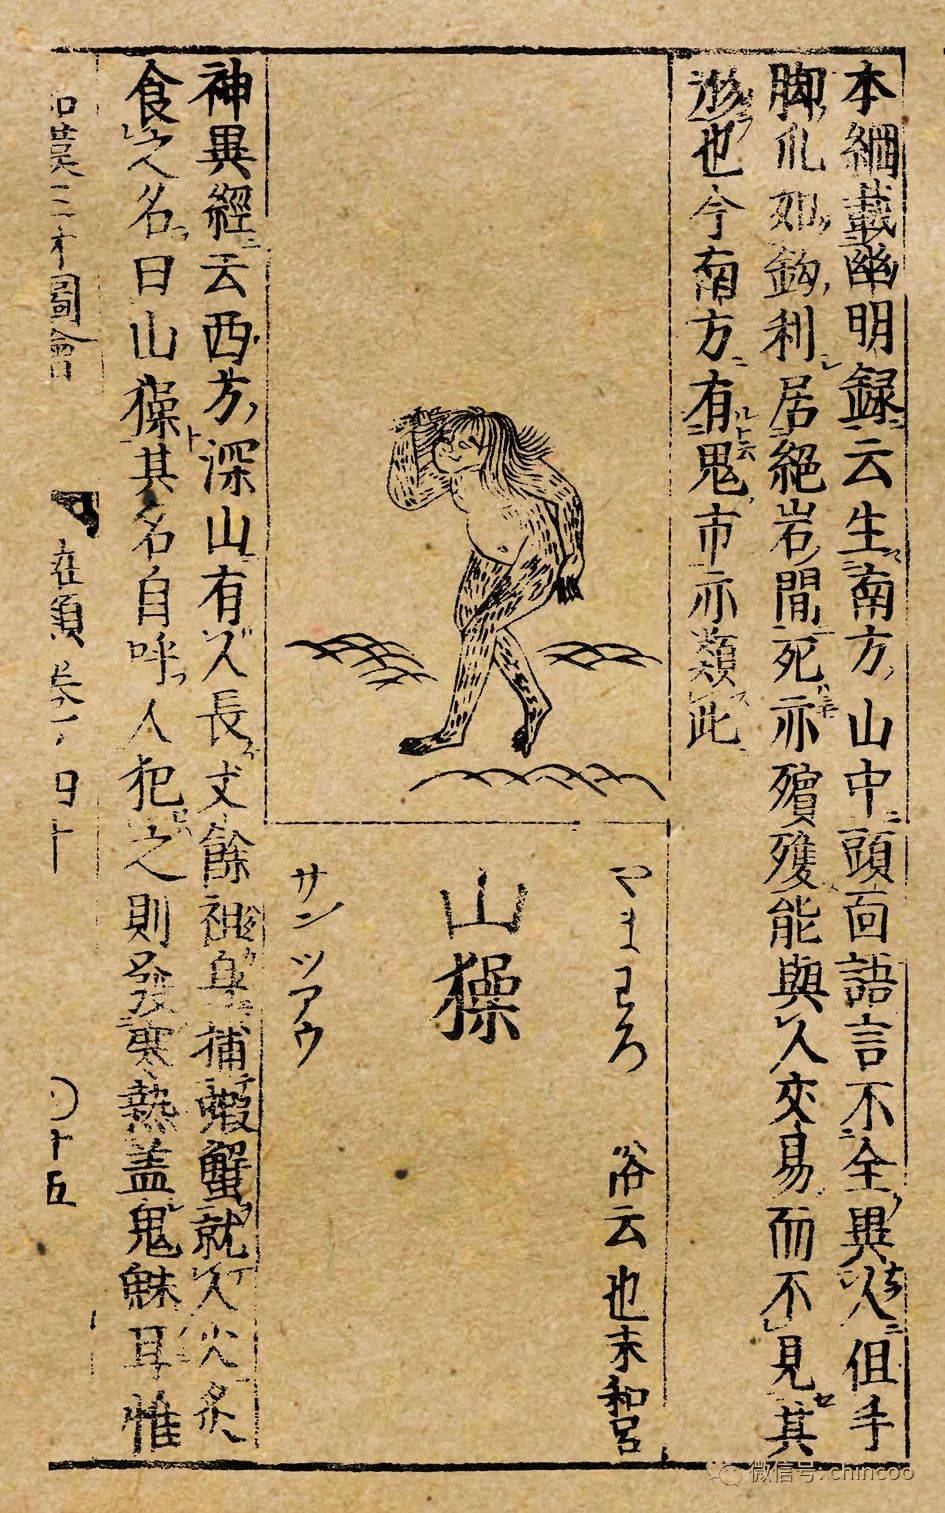 本綱載幽明録云生南方山中頭面語言不全異人但手
脚爪如鈎利居絕岩間死亦殯殮能與人交易而不見其
形也今南方有鬼市亦類此
やまわろ 俗云也末和呂
山𤢖
サンツアウ
神異經云西方深山有人長丈餘袒身捕蝦蟹就人火炙
食之人名曰山𤢖其名自呼人犯之則發寒熱盖鬼魅耳惟
和漢三才圖會 類 卷ノ四十 〇十五
微信号: chincoo